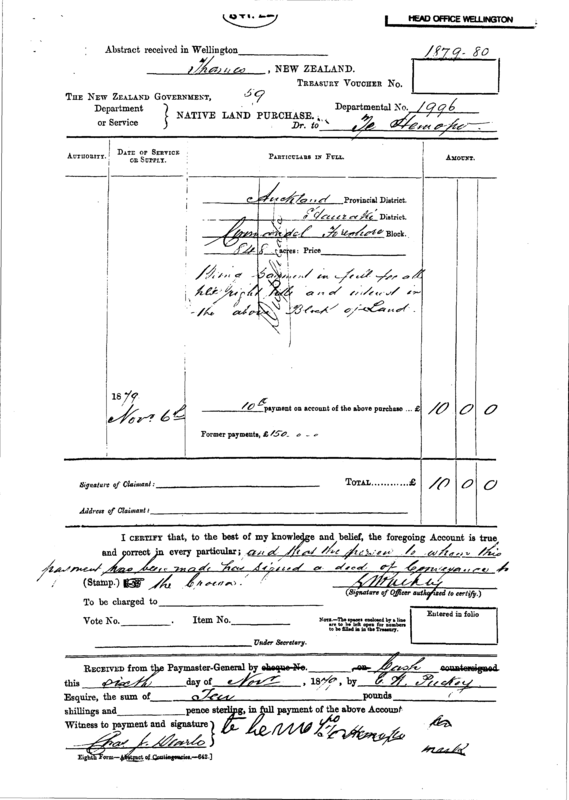 HEAD OFFICE WELLINGTON
Abstract received in Wellington
1879-80
Thames, NEW ZEALAND.
TREASURY VOUCHER No.
59
THE NEW ZEALAND GOVERNMENT,
Department or Service } NATIVE LAND PURCHASE.
Departmental No. 1996
Dr. to Te Hemopo.
AUTHORITY. DATE OF SERVICE OR SUPPLY. PARTICULARS IN FULL. AMOUNT.
Auckland Provincial District.
Hauraki District.
Coromandel Foreshore Block.
848 acres: Price
Duplicate
Being payment in full for all
his right title and interest in
the above Block of Land.
1879
Novr 6th 10th payment on account of the above purchase ... £ 10 0 0
Former payments, £150. - -
Signature of Claimant: TOTAL............£ 10 0 0
Address of Claimant:
I CERTIFY that, to the best of my knowledge and belief, the foregoing Account is true
and correct in every particular; and that the person to whom this
payment has been made has signed a deed of Conveyance to
(Stamp.) the Crown.
(Signature of Officer authorized to certify.)
To be charged to
Vote No. . Item No. .
NOTE.—The spaces enclosed by a line are to be left open for numbers to be filled in in the Treasury.
Entered in folio
Under Secretary.
RECEIVED from the Paymaster-General by cheque No. , on Cash countersigned
this sixth day of Novr, 1879, by E W Puckey
Esquire, the sum of Ten pounds
shillings and pence sterling, in full payment of the above Account
Witness to payment and signature } te hemopo
his
mark
Eighth Form—Abstract of Contingencies.—642.]